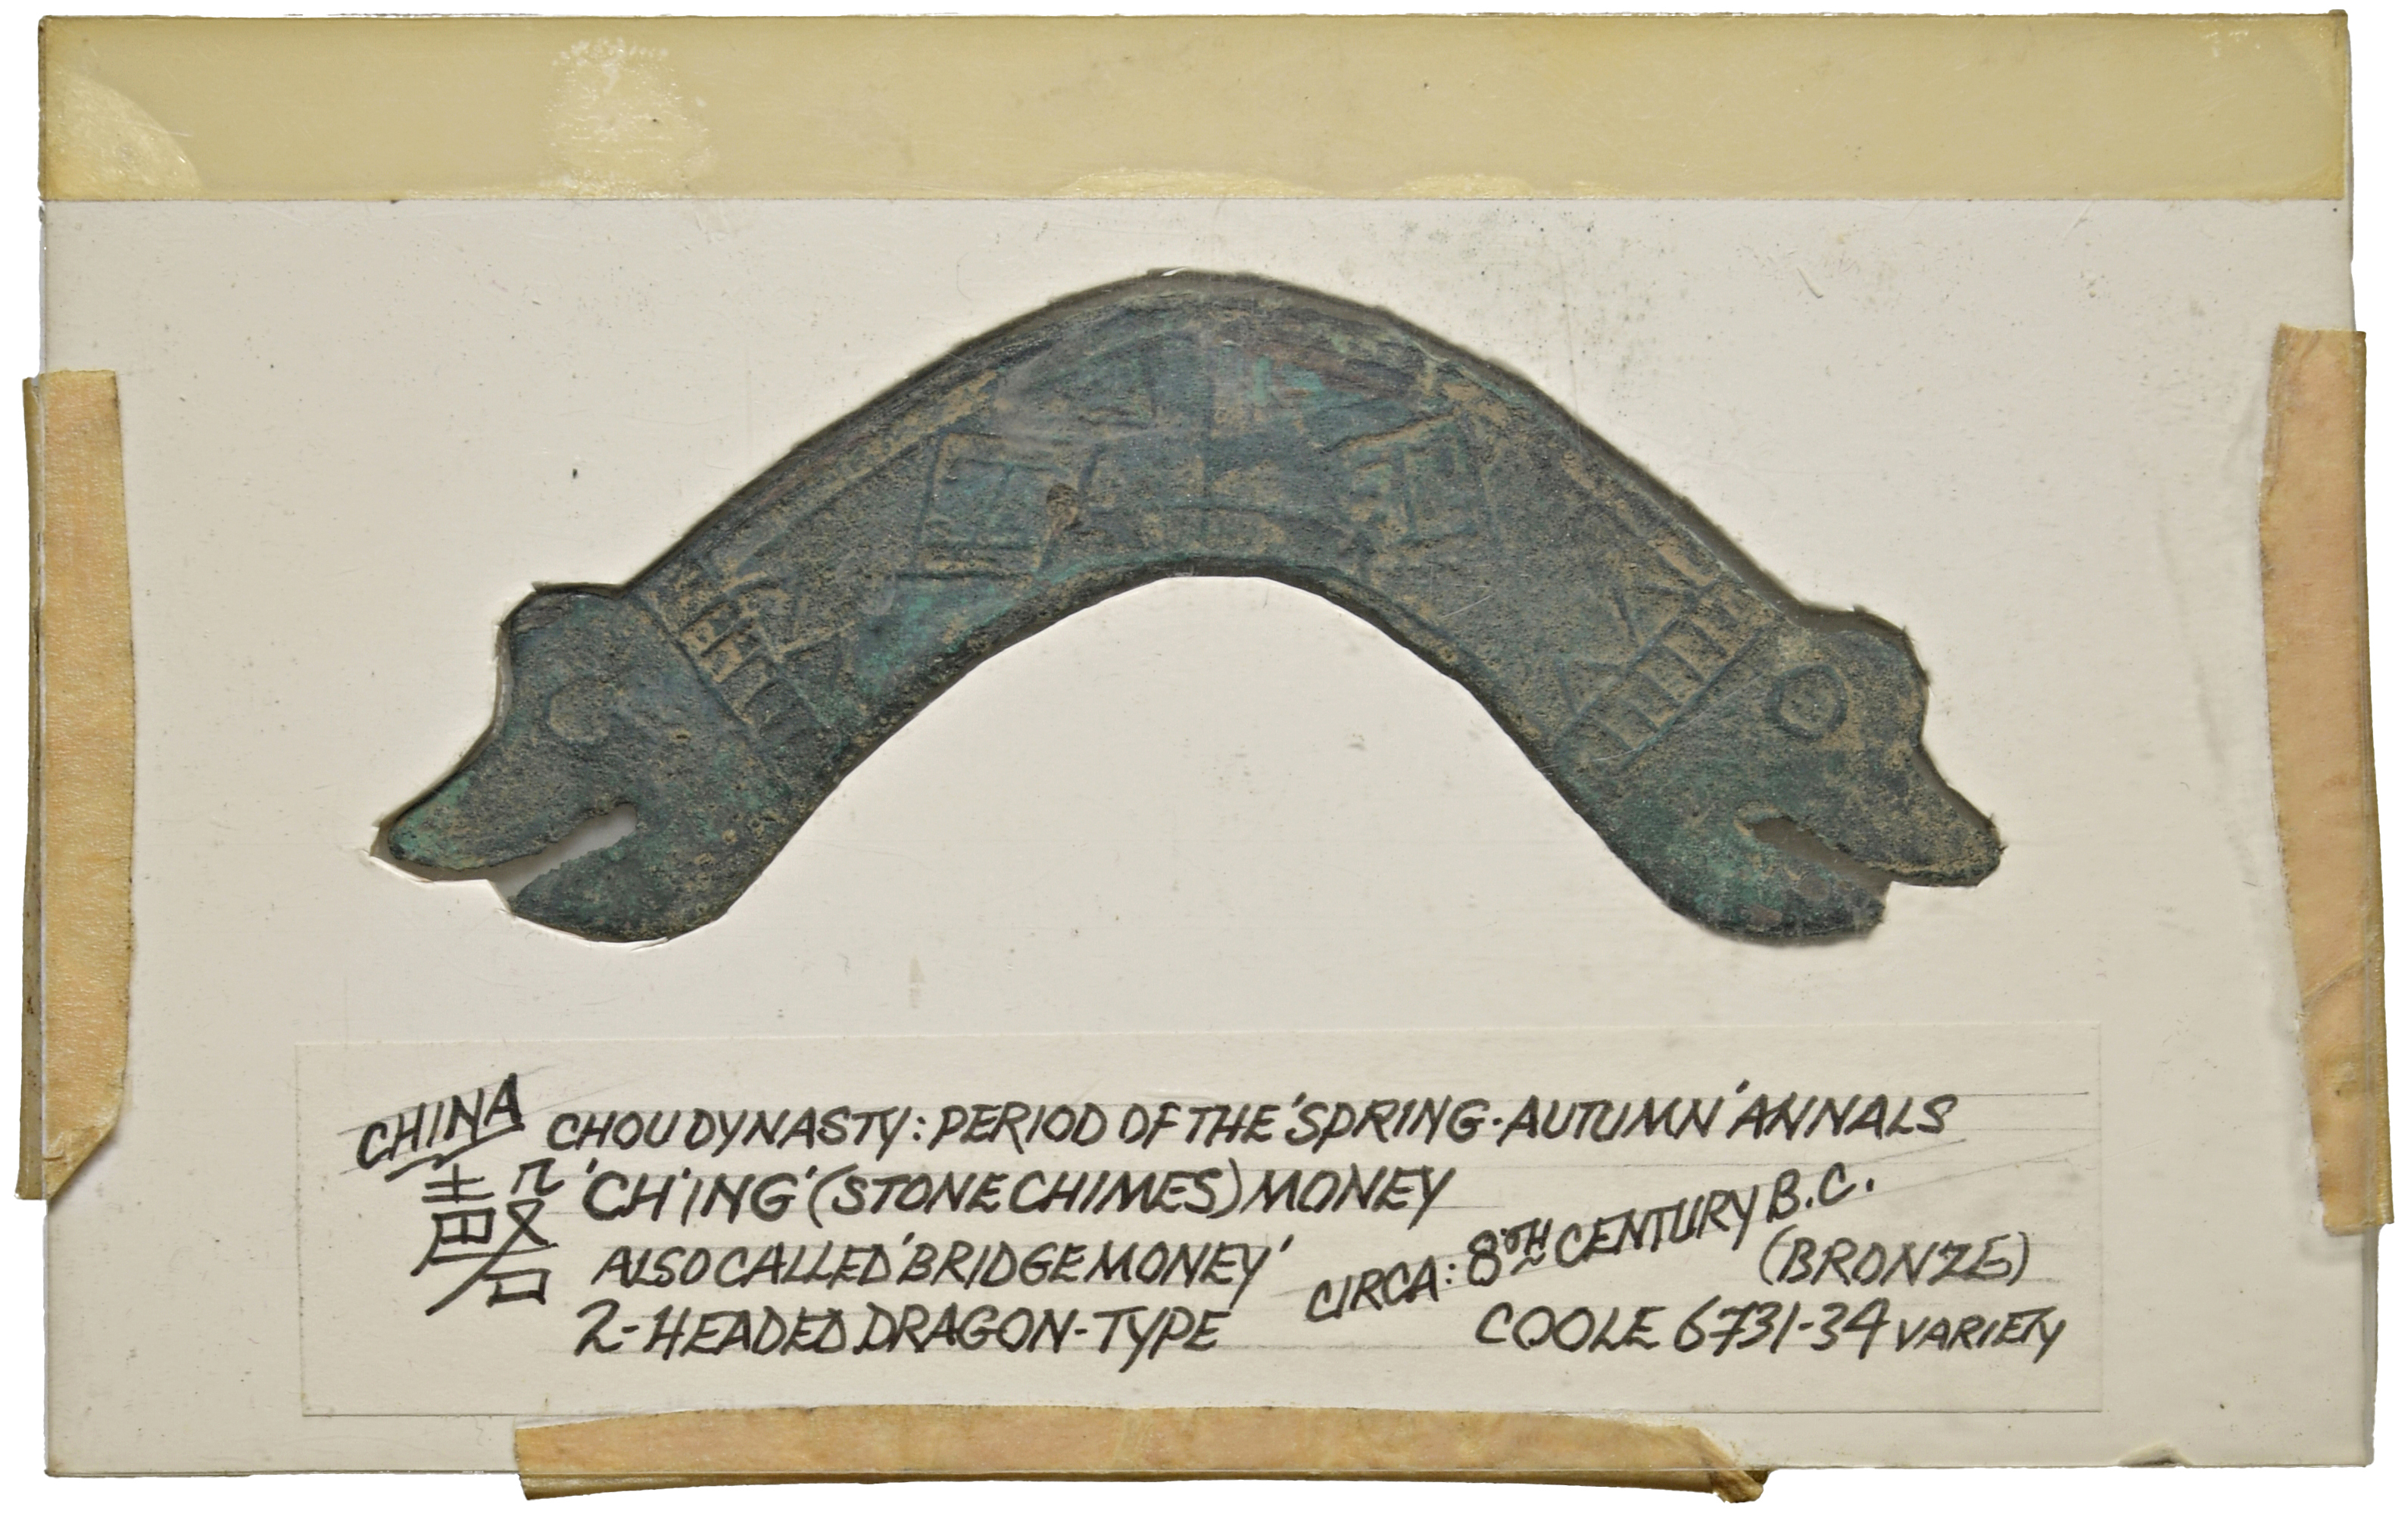 CHINA CHOU DYNASTY: PERIOD OF THE 'SPRING-AUTUMN' ANNALS
磬 'CH'ING' (STONE CHIMES) MONEY
ALSO CALLED 'BRIDGE MONEY' CIRCA: 8TH CENTURY B.C.
(BRONZE)
2-HEADED DRAGON-TYPE COOLE 6731-34 VARIETY